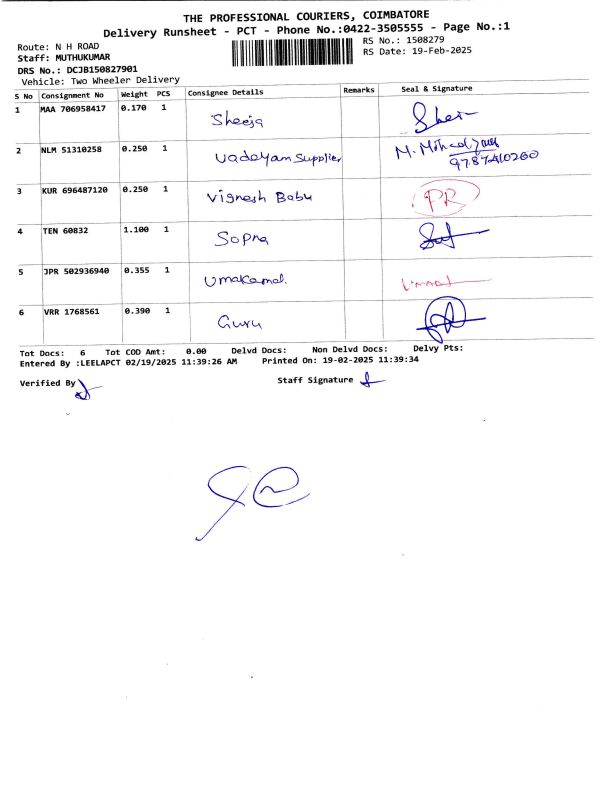 THE PROFESSIONAL COURIERS, COIMBATORE
Delivery Runsheet - PCT - Phone No.:0422-3505555 - Page No.:1
Route: N H ROAD RS No.: 1508279
Staff: MUTHUKUMAR RS Date: 19-Feb-2025
DRS No.: DCJB150827901
Vehicle: Two Wheeler Delivery
S No Consignment No Weight PCS Consignee Details Remarks Seal & Signature
1 MAA 706958417 0.170 1 Sheeja
2 NLM 51310258 0.250 1 Vadayam Supplier
3 KUR 696487120 0.250 1 Vignesh Babu PR
4 TEN 60832 1.100 1 Sopna
5 JPR 502936940 0.355 1
6 VRR 1768561 0.390 1 Guru
Tot Docs: 6 Tot COD Amt: 0.00 Delvd Docs: Non Delvd Docs: Delvy Pts:
Entered By :LEELAPCT 02/19/2025 11:39:26 AM Printed On: 19-02-2025 11:39:34
Verified By Staff Signature